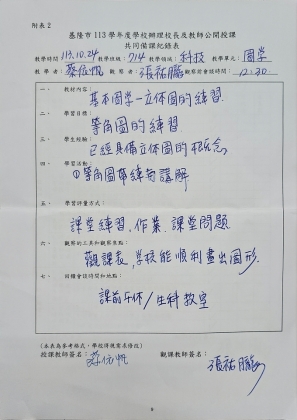 附表 2
基隆市 113 學年度學校辦理校長及教師公開授課
共同備課紀錄表
教學時間：113.10.24 教學班級：714 教學領域：科技 教學單元：圖學
教 學 者：蔡依帆 觀 察 者：張祐鵬 觀察前會談時間：12:30
一、 教材內容：
基本圖學－立體圖的練習
二、 學習目標：
等角圖的練習
三、 學生經驗：
已經具備立體圖的概念
四、 學習活動：
①等角圖 練習 講解
五、 學習評量方式：
課堂練習、作業、課堂問題
六、 觀察的工具和觀察焦點：
觀課表，學校能順利畫出圖形.
七、 回饋會談時間和地點：
課前 / 生科教室
(本表為參考格式，學校得視需求修改)
授課教師簽名：蔡依帆 觀課教師簽名：張祐鵬